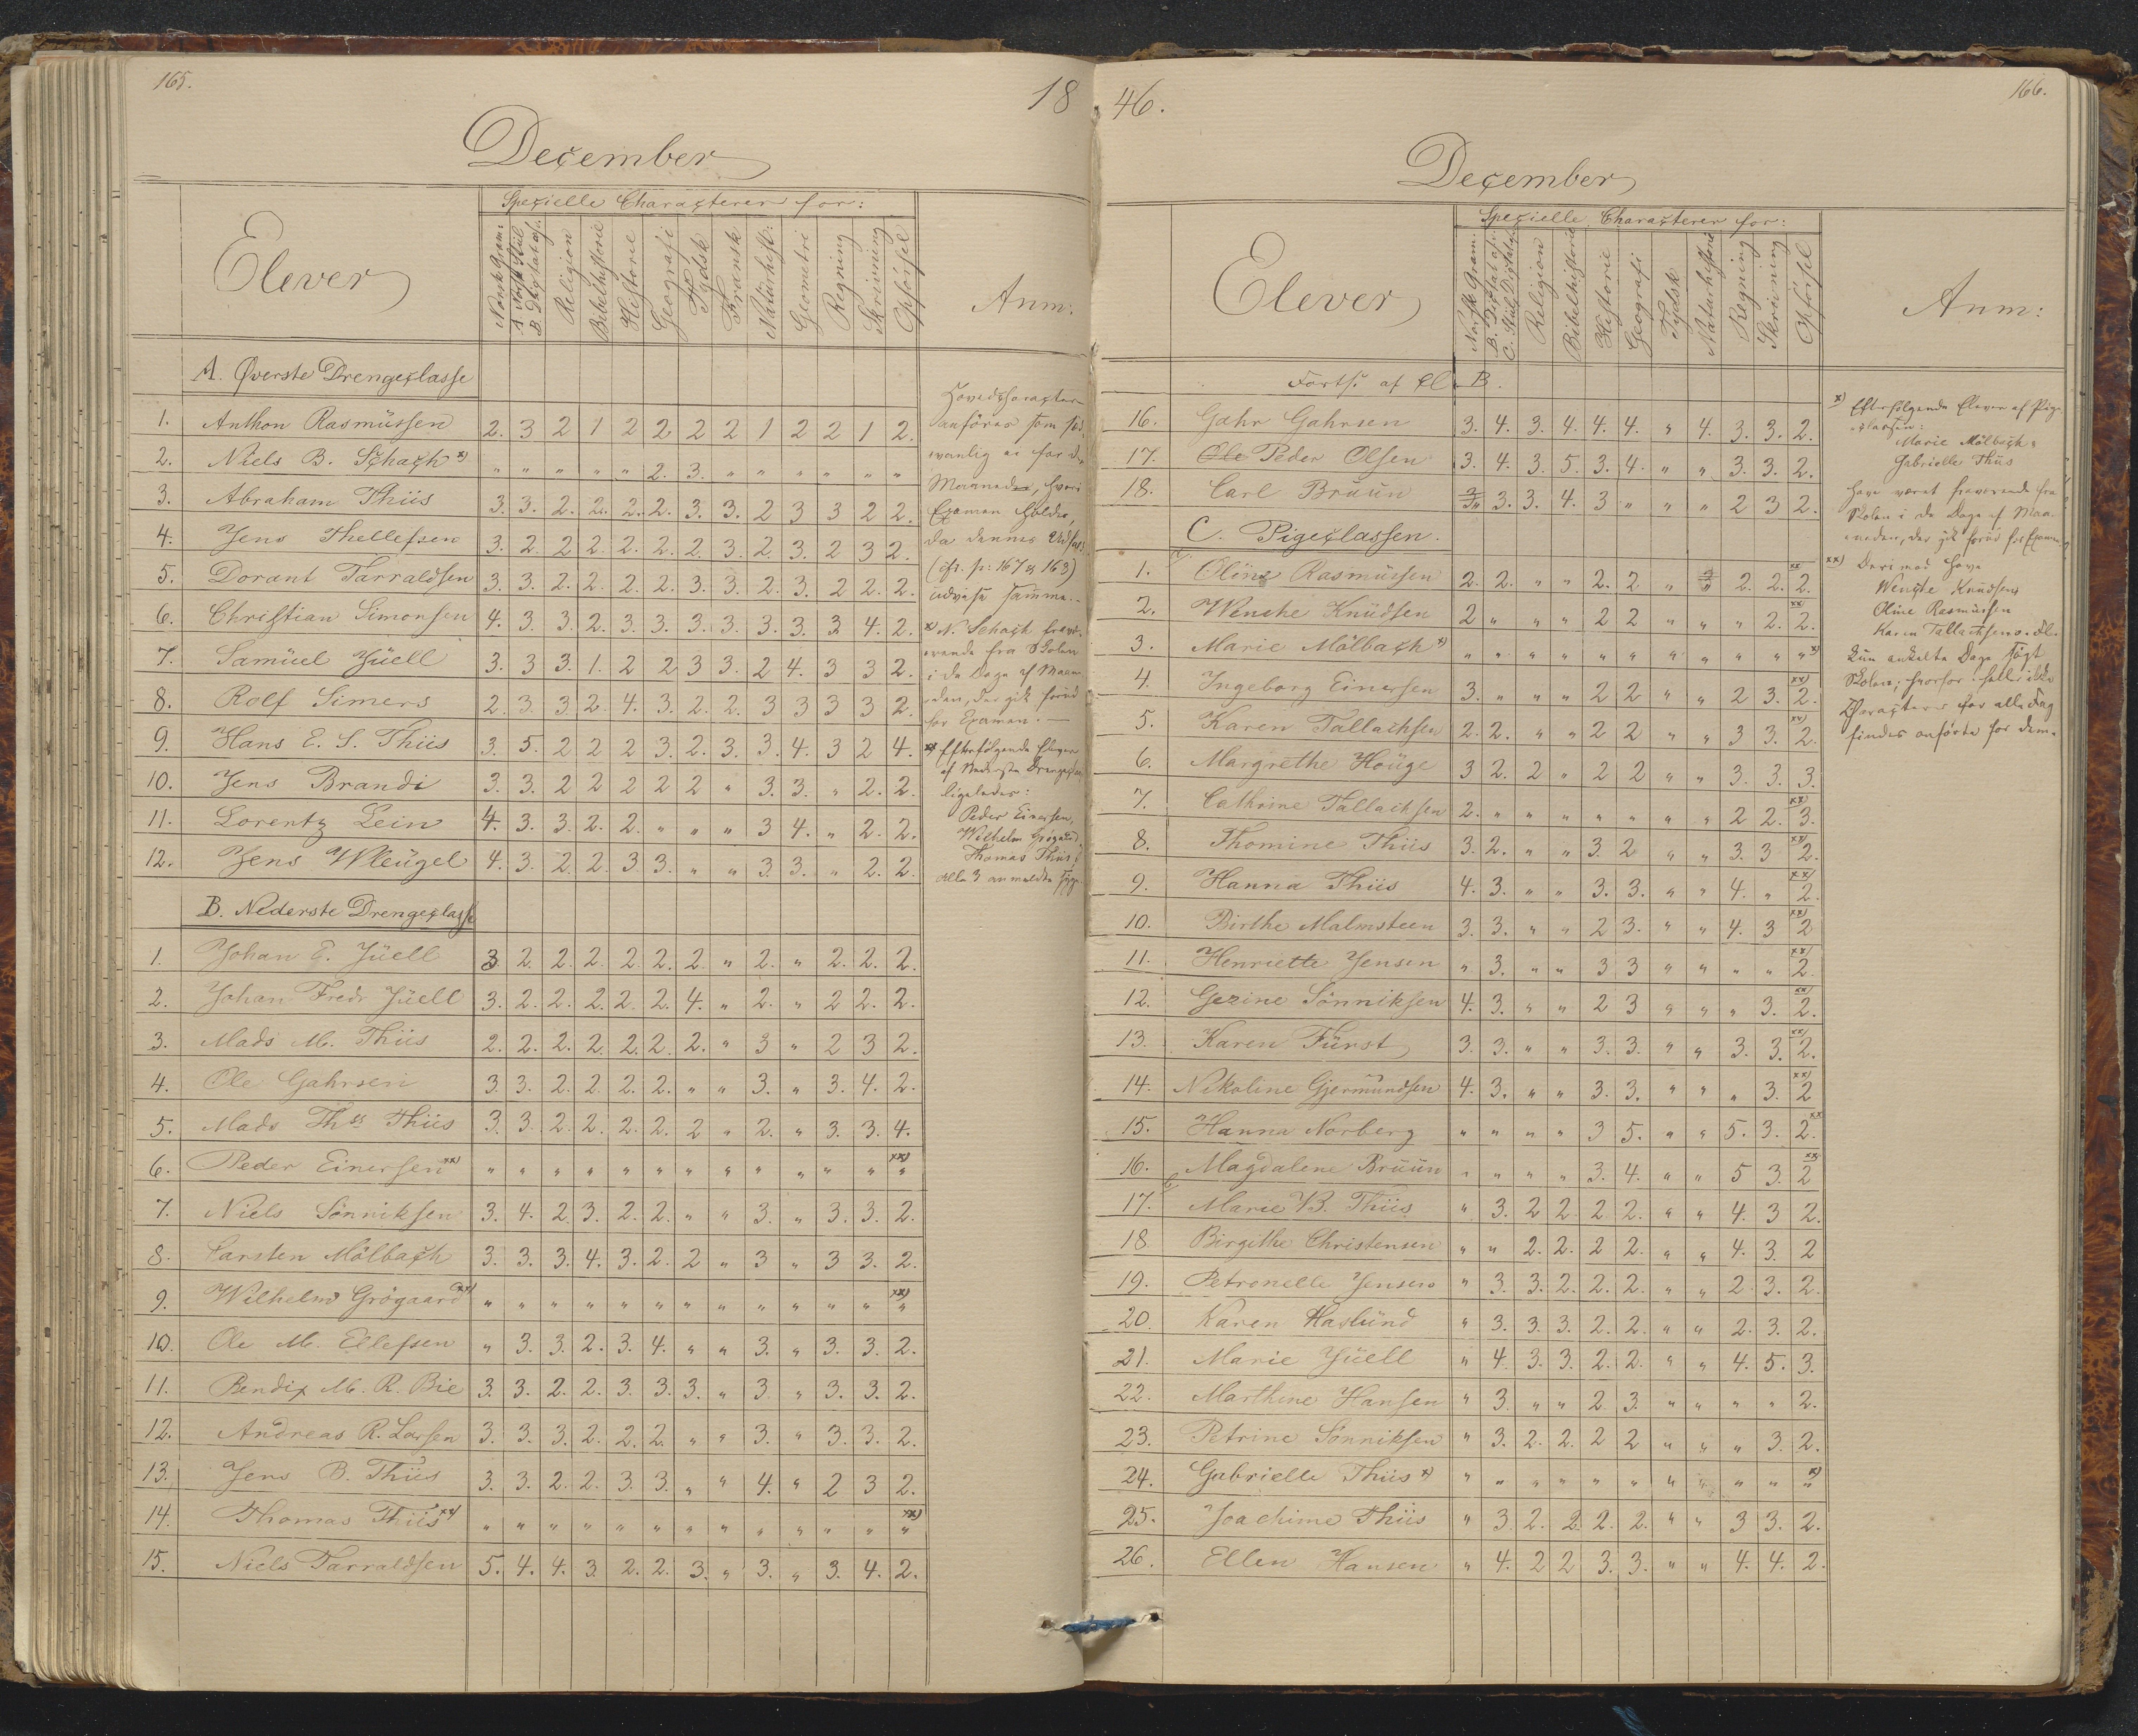 165.
18
December
Elever
Specielle Characterer for:
Norsk Gram:
A. Norsk Stiil
B. Dictat af:
Religion
Bibelhistorie
Historie
Geografi
Tydsk
Fransk
Naturhist:
Geometri
Regning
Skrivning
Opførsel
Anm:
A. Øverste Drengeclasse
1. Anthon Rasmüssen 2. 3 2 1 2 2 2 2 1 2 2 1 2.
2. Niels B. Schach x) " " " " " 2. 3. " " " " " "
3. Abraham Thiis 3. 3. 2. 2. 2. 2. 3. 3. 2 3 3 2 2.
4. Jens Thellefsen 3. 2. 2 2. 2. 2. 2. 3. 2. 3. 2 3 2.
5. Dorant Tarraldsen 3. 3. 2. 2. 2. 2. 3. 3. 2. 3. 2 2. 2.
6. Christian Simonsen 4. 3. 3. 2. 3. 3. 3. 3. 3. 3. 3. 4. 2.
7. Samüel Jüell 3. 3 3. 1. 2 2 3 3. 2 4. 3 3 2.
8. Rolf Simers 2. 3. 3. 2. 4. 3. 2. 2. 3 3 3 3 2.
9. Hans E. S. Thiis 3. 5. 2 2 2 3. 2. 3. 3. 4. 3 2 4.
10. Jens Brandi 3. 3. 2 2 2 2 2 " 3. 3. " 2. 2.
11. Lorentz Lein 4. 3. 3. 2. 2. " " " 3 4. " 2. 2.
12. Jens Wleügel 4. 3. 2. 2. 3 3. " " 3. 3. " 2. 2.
Hovedcharacteren
anføres som sæd-
vanlig ei for de
Maaneder, hvori
Examen holdes,
da dennes Udfald
(cfr. p: 167 & 163)
udvise samme.
x) N. Schach fravæ-
rende fra Skolen
i de Dage af Maane-
den, der gik forud
for Examen. —
xx) Efterfølgende Elever
af Nederste Drengeclasse
ligeledes:
Peder Einersen,
Wilhelm Grøgaard,
Thomas Thiis,
alle 3 anmeldte syge.
B. Nederste Drengeclasse
1. Johan E. Jüell 3 2. 2. 2. 2. 2. 2. " 2. " 2. 2. 2.
2. Johan Fredr Jüell 3. 2. 2. 2. 2. 2. 4. " 2. " 2 2. 2.
3. Mads M. Thiis 2. 2. 2. 2. 2. 2. 2. " 3 " 2 3 2.
4. Ole Gahrsen 3. 3. 2. 2. 2. 2. " " 3. " 3. 4. 2.
5. Mads Ths Thiis 3. 3. 2. 2. 2. 2. 2 " 2. " 3. 3. 4.
6. Peder Einersen xx) " " " " " " " " " " " " " xx)
7. Niels Sönniksen 3. 4. 2. 3. 2. 2. " " 3. " 3. 3. 2.
8. Carsten Mölbach 3. 3. 3. 4. 3. 2. 2 " 3 " 3 3. 2.
9. Wilhelm Grögaard xx) " " " " " " " " " " " " " xx)
10. Ole M. Ellefsen " 3. 3. 2. 3. 4. " " 3. " 3. 3. 2.
11. Bendix M. R. Bie 3. 3. 2. 2. 3. 3. 3. " 3. " 3. 3. 2.
12. Andreas R. Larsen 3. 3. 3. 2. 2. 2. " " 3. " 3. 3. 2.
13. Jens B. Thiis 3. 3. 2. 2. 3. 3. " " 4. " 2 3 2.
14. Thomas Thiis xx) " " " " " " " " " " " " " xx)
15. Niels Tarraldsen 5. 4. 4. 3. 2. 2. 3. " 3. " 3. 4. 2.
46.
166.
December
Elever
Specielle Characterer for:
Norsk Gram.
B. Dictat af:
C. Stiil Dictat
Religion
Bibelhistorie
Historie
Geografi
Tydsk
Naturhistorie
Regning
Skrivning
Opførsel
Anm:
Forts. af Cl. B.
16. Gahr Gahrsen 3. 4. 3. 4. 4. 4. " 4. 3. 3. 2.
17. Ole Peder Olsen 3. 4. 3. 5. 3. 4. " " 3. 3. 2.
18. Carl Brüün 3. 3. 4. 3 " " " 2 3 2.
C. Pigeclassen.
1. Oline Rasmüssen 2. 2. " " 2. 2 " " 2. 2. 2. xx
2. Wenche Knüdsen 2 " " " 2 2 " " " 2. 2. xx
3. Marie Mölbach x) " " " " " " " " " " " x)
4. Ingeborg Einersen 3. " " " 2 2 " " 2 3. 2. xx)
5. Karen Tallachsen 2. 2. " " 2 2 " " 3 3. 2. xx)
6. Margrethe Höüge 3 2. 2 " 2 2 " " 3. 3. 3.
7. Cathrine Tallachsen 2. " " " " " " " 2 2. 3. xx)
8. Thomine Thiis 3. 2. " " 3. 2 " " 3. 3 2. xx)
9. Hanna Thiis 4. 3. " " 3. 3. " " 4. " 2. xx)
10. Birthe Malmsteen 3. 3. " " 2 3. " " 4. 3 2 xx)
11. Henriette Jensen " 3. " " 3 3 " " " " 2. xx)
12. Gezine Sönniksen 4. 3. " " 2 3 " " " 3. 2. xx)
13. Karen Fürst 3. 3. " " 3. 3. " " 3. 3. 2. xx)
14. Nikoline Gjermündsen 4. 3. " " 3. 3. " " " 3. 2 xx)
15. Hanna Norberg " " " " 3 5. " " 5. 3. 2. xx
16. Magdalene Brüün " " " " 3. 4. " " 5 3. 2 xx
17. Marie B. Thiis " 3. 2 2. 2. 2. " " 4. 3 2.
18 Birgithe Christensen " " 2. 2. 2 2. " " 4. 3. 2
19. Petronelle Jensen " 3. 3. 2. 2. 2. " " 2. 3. 2.
20. Karen Haslünd " 3. 3. 3. 2. 2. " " 2. 3. 2.
21. Marie Jüell " 4. 3. 3. 2. 2. " " 4. 5. 3.
22. Marthine Hansen " 3. " " 2 3. " " " " 2.
23. Petrine Sönniksen " 3. 2. 2. 2 2 " " " 3. 2.
24. Gabrielle Thiis x) " " " " " " " " " " x)
25. Joachime Thiis " 3. 2. 2. 2. 2. " " 3 3. 2.
26. Ellen Hansen " 4. 2 2 3. 3. " " 4. 4. 2.
x) Efterfølgende Elever af Pige-
classen:
Marie Mölbach &
Gabrielle Thiis
have været fraværende fra
Skolen i de Dage af Maa-
neden, der gik forud for Examen.
xx) Derimod have
Wenche Knudsen
Oline Rasmüssen
Karen Tallachsen o. Fl.
kun enkelte Dage søgt
Skolen; hvorfor heller ikke
Characterer for alle Fag
findes anførte for dem.